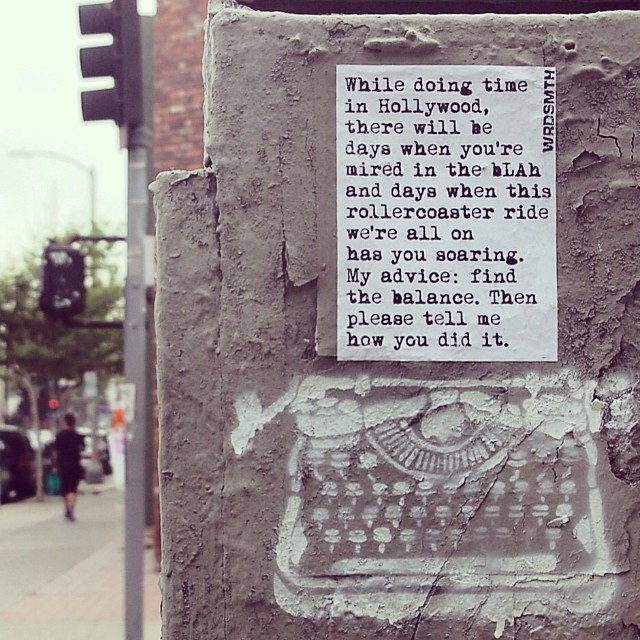 While doing time
in Hollywood,
there will be
days when you're
mired in the bLAh
and days when this
rollercoaster ride
we're all on
has you soaring.
My advice: find
the balance. Then
please tell me
how you did it.
WRDSMTH